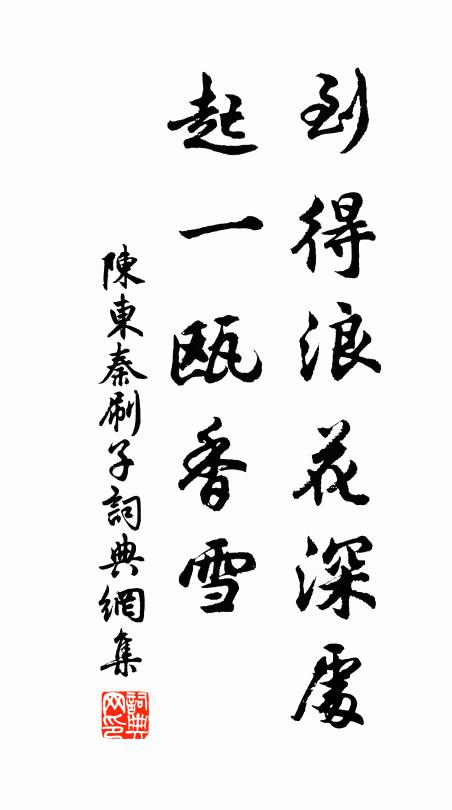 到得浪花深處
起一甌香雪
陳東秦刷子詞典網集
詞典網印